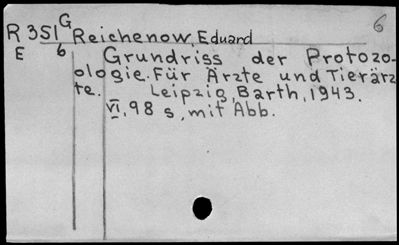 6
R 351 G Reichenow, Eduard
E 6 Grundriss der Protozo-
ologie. Für Ärzte und Tierärz
te. Leipzig, Barth, 1943.
VI, 98 s, mit Abb.